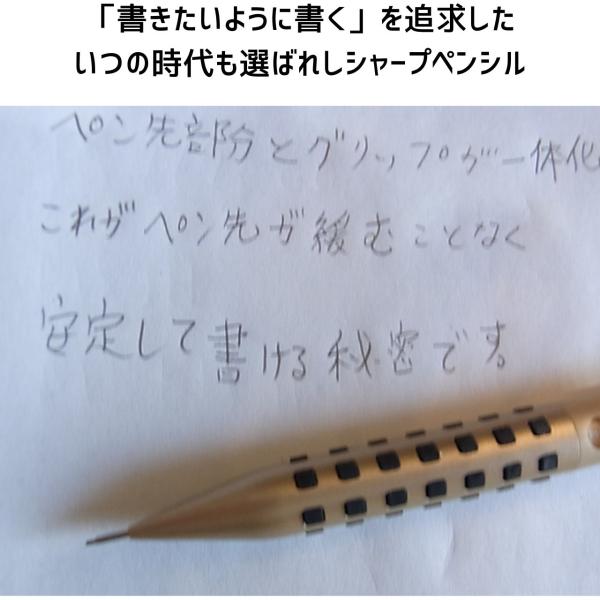 「書きたいように書く」を追求した
いつの時代も選ばれしシャープペンシル
ペン先部分とグリップが一体化
これがペン先が緩むことなく
安定して書ける秘密です。